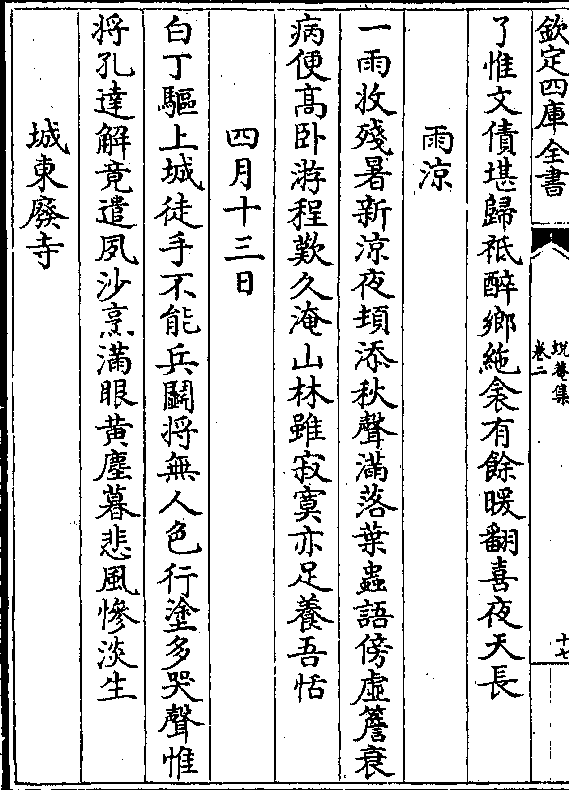 欽定四庫全書
蛻菴集
卷二
十七
了惟文債堪歸祗醉鄉絁衾有餘暖翻喜夜天長
雨涼
一雨收殘暑新涼夜頓添秋聲滿落葉蟲語傍虛簷衰
病便高卧游程歎久淹山林雖寂寞亦足養吾恬
四月十三日
白丁驅上城徒手不能兵鬭將無人色行塗多哭聲惟
將孔達解竟遣夙沙烹滿眼黃塵暮悲風慘淡生
城東廢寺